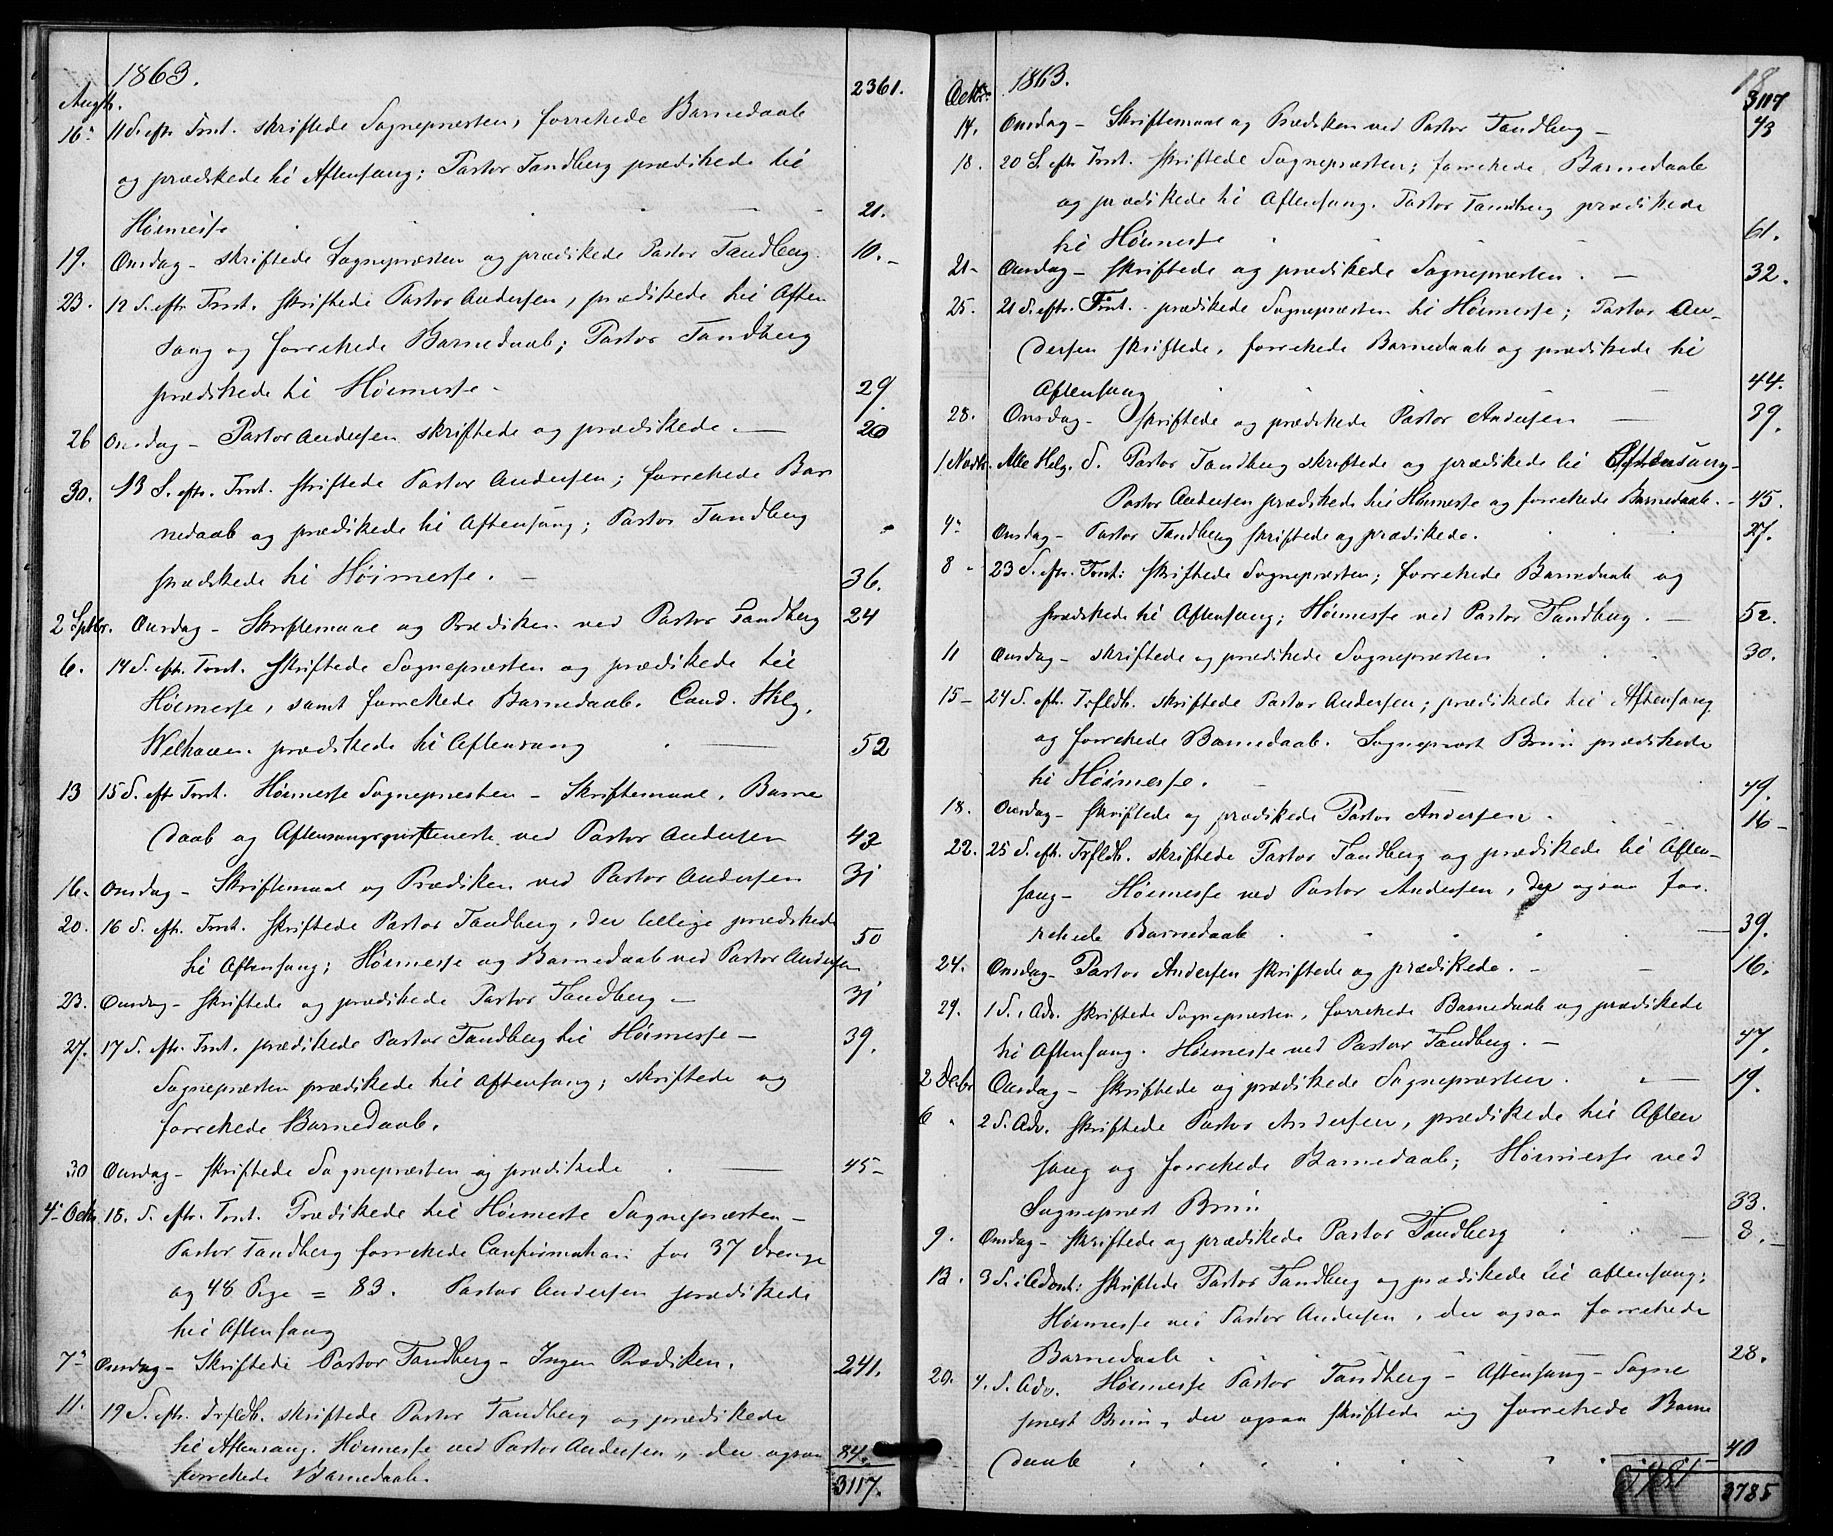 1863.
2361.
Augst.
16. 11 S. eftr Trnt. skriftede Sognepræsten, forrettede Barnedaab
og prædikede til Aftensang; Pastor Tandberg prædikede til
Høimesse 21.
19. Onsdag – skriftede Sognepræsten og prædikede Pastor Tandberg 10.–
23. 12 S. eftr Trnt. skriftede Pastor Andersen, prædikede til Aften
sang og forrettede Barnedaab; Pastor Tandberg
prædikede til Høimesse – 29.
26 Onsdag – Pastor Andersen skriftede og prædikede. — 20
30. 13 S. eftr. Trnt. skriftede Pastor Andersen; forrettede Bar
nedaab og prædikede til Aftensang; Pastor Tandberg
prædikede til Høimesse. – 36.
2 Septbr. Onsdag – Skriftemaal og Prædiken ved Pastor Tandberg 24
6. 14 S. eftr. Trnt. skriftede Sognepræsten og prædikede til
Høimesse, samt forrettede Barnedaab. Cand. Hilg.
Welhaven prædikede til Aftensang — 52
13 15 S. eftr Trnt. Høimesse Sognepræsten – Skriftemaal, Barne
daab og Aftensangsgudstjeneste ved Pastor Andersen 42
16. Onsdag – Skriftemaal og Prædiken ved Pastor Andersen 31
20. 16 S. eftr. Trnt. skriftede Pastor Tandberg, der tillige prædikede
til Aftensang; Høimesse og Barnedaab ved Pastor Andersen 50
23. Onsdag – skriftede og prædikede Pastor Tandberg – 31
27. 17 S. eftr. Trnt. prædikede Pastor Tandberg til Høimesse – 39.
Sognepræsten prædikede til Aftensang; skriftede og
forrettede Barnedaab.
30 Onsdag – skriftede Sognepræsten og prædikede — 45–
4. Octbr. 18. S. eftr. Trnt. Prædikede til Høimesse Sognepræsten –
Pastor Tandberg forrettede Confirmation for 37 Drenge
og 48 Pige = 83. Pastor Andersen prædikede
til Aftensang
7. Onsdag – Skriftede Pastor Tandberg – Ingen Prædiken. 241.
11. 19 S. eftr. Trfldh. skriftede Pastor Tandberg og prædikede
til Aftensang. Høimesse ved Pastor Andersen, der ogsaa 84.
forrettede Barnedaab. 3117.
18
Octbr. 1863. 3117
14. Onsdag – Skriftemaal og Prædiken ved Pastor Tandberg – 43
18. 20 S. eftr Trnt. skriftede Sognepræsten; forrettede Barnedaab
og prædikede til Aftensang. Pastor Tandberg prædikede
til Høimesse 61.
21– Onsdag – skriftede og prædikede Sognepræsten. – 32.
25. 21 S. eftr. Trnt. – prædikede Sognepræsten til Høimesse; Pastor An–
dersen skriftede, forrettede Barnedaab og prædikede til
Aftensang — 44.
28. Onsdag – skriftede og prædikede Pastor Andersen — 39.
1 Novbr. Alle Helg. S. Pastor Tandberg skriftede og prædikede til Aftensang –
Pastor Andersen prædikede til Høimesse og forrettede Barnedaab. – 45.
4. Onsdag – Pastor Tandberg skriftede og prædikede. 27.
8 – 23 S. eftr. Trnt: skriftede Sognepræsten; forrettede Barnedaab og
prædikede til Aftensang; Høimesse ved Pastor Tandberg. – 52.
11 Onsdag – skriftede og prædikede Sognepræsten 30.
15– 24 S. eft. Trfldh. skriftede Pastor Andersen; prædikede til Aftensang
og forrettede Barnedaab. Sognepræst Bruun prædikede
til Høimesse. – 49.
18. Onsdag – skriftede og prædikede Pastor Andersen. 16–
22. 25 S. eft. Trfldh. skriftede Pastor Tandberg og prædikede til Aften–
sang – Høimesse ved Pastor Andersen, der ogsaa for–
rettede Barnedaab 39.
24. Onsdag – Pastor Andersen skriftede og prædikede. – 16.
29. 1 S. i Adv. skriftede Sognepræsten, forrettede Barnedaab og prædikede
til Aftensang. Høimesse ved Pastor Tandberg. – 47.
2 Decbr. Onsdag – skriftede og prædikede Sognepræsten. — 19.
6 2 S. Adv. skriftede Pastor Andersen, prædikede til Aften
sang og forrettede Barnedaab; Høimesse ved
Sognepræst Bruun 33.
9. Onsdag – skriftede og prædikede Pastor Tandberg 8.–
13. 3 S. i Advnt: skriftede Pastor Tandberg og prædikede til Aftensang;
Høimesse ved Pastor Andersen, der ogsaa forrettede
Barnedaab 28.
20. 4. S. Adv. Høimesse Pastor Tandberg – Aftensang – Sogne
præst Bruun, der ogsaa skriftede og forrettede Barne
daab 40
3785